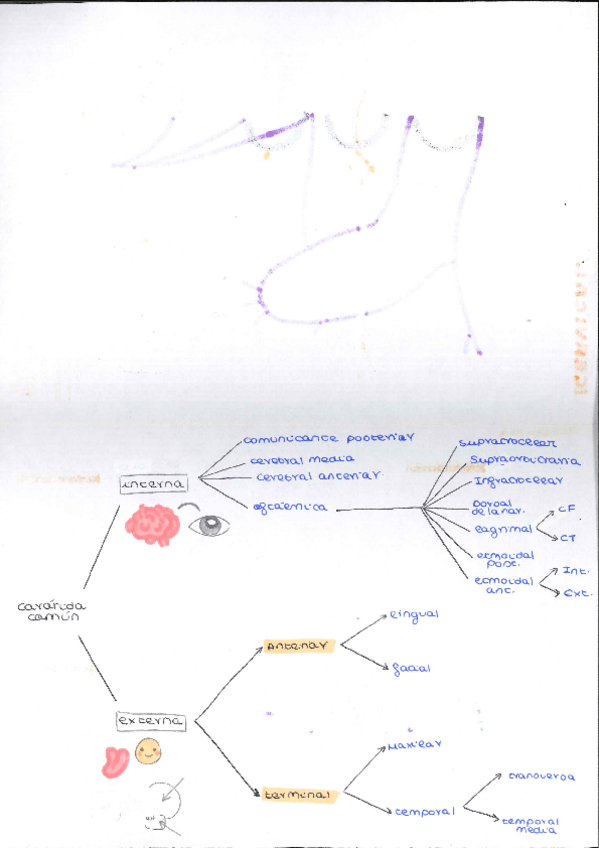 comunicante posterior
cerebral media
cerebral anterior
oftálmica
interna
supratroclear
Supraorbitaria
Infratroclear
Dorsal
de la nar.
lagrimal
CF
CT
etmoidal
post.
etmoidal
ant.
Int.
Ext.
carótida
común
externa
Anterior
lingual
facial
terminal
Maxilar
temporal
transversa
temporal
media